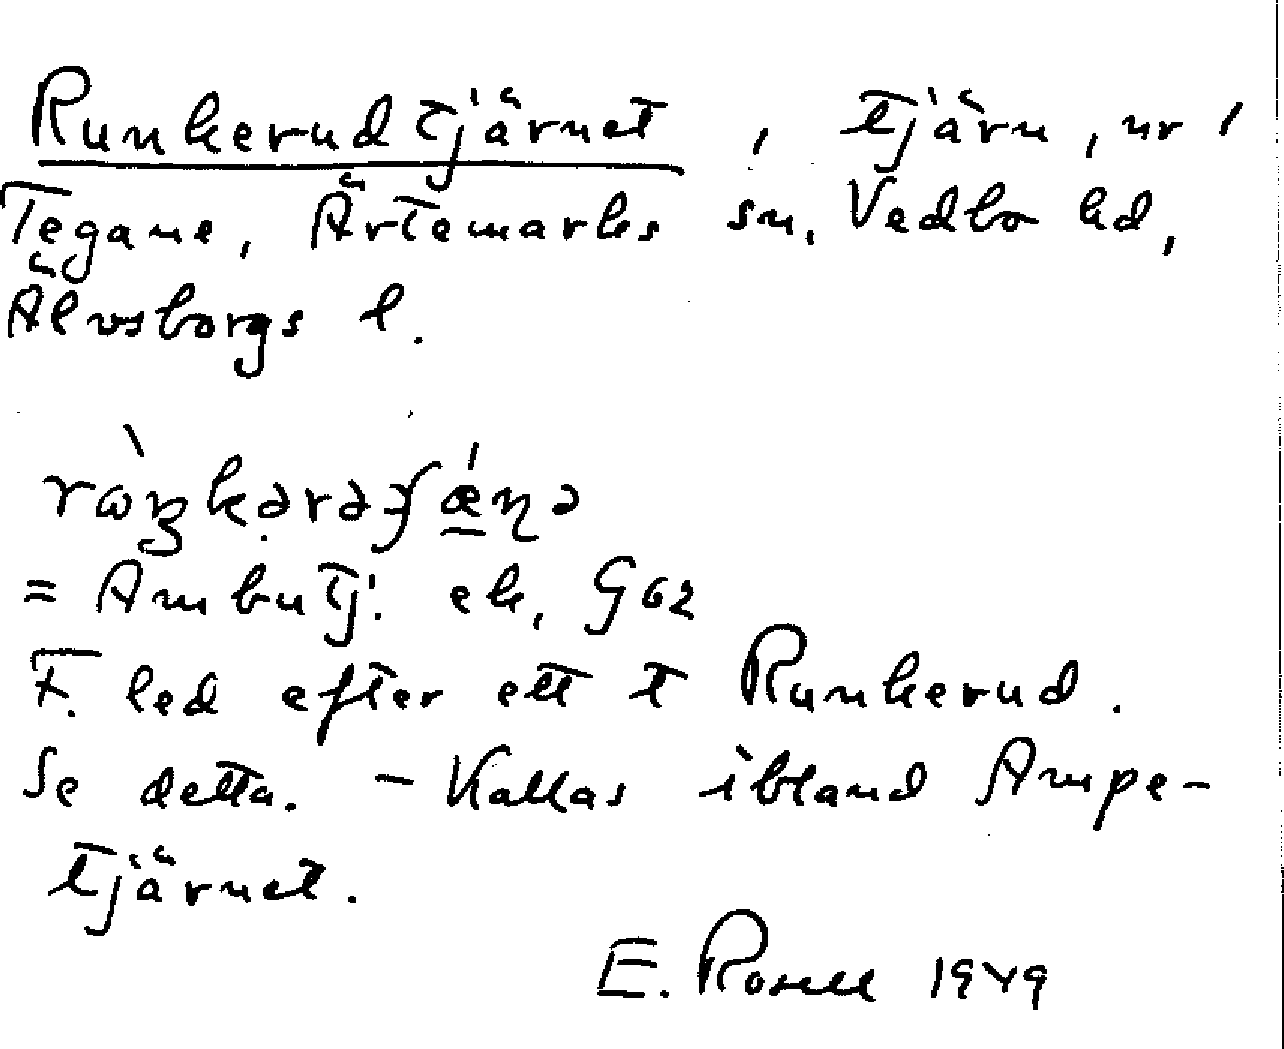 Runkerudtjärnet, tjärn, nr 1
Tegane, Ärtemarks sn, Vedbo hd,
Älvsborgs l.
= Ambutj. ek. G62
F. led efter ett t Runkerud.
Se detta. - Kallas ibland Ampe-
tjärnet.
E. Rosell 1949